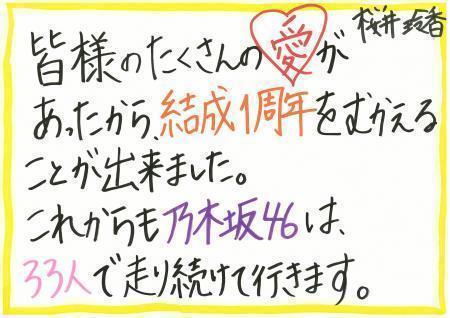 桜井玲香
皆様のたくさんの愛が
あったから、結成1周年をむかえる
ことが出来ました。
これからも乃木坂46は、
33人で走り続けて行きます。